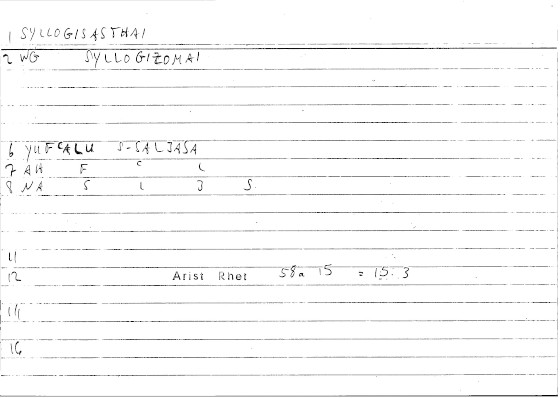 1 SYLLOGISASTHAI
2 WG SYLLOGIZOMAI
6 YUFCALU S-SALJASA
7 AH F C L
8 NA S L J S
11
12 Arist Rhet 58a 15 = 15. 3
14
16